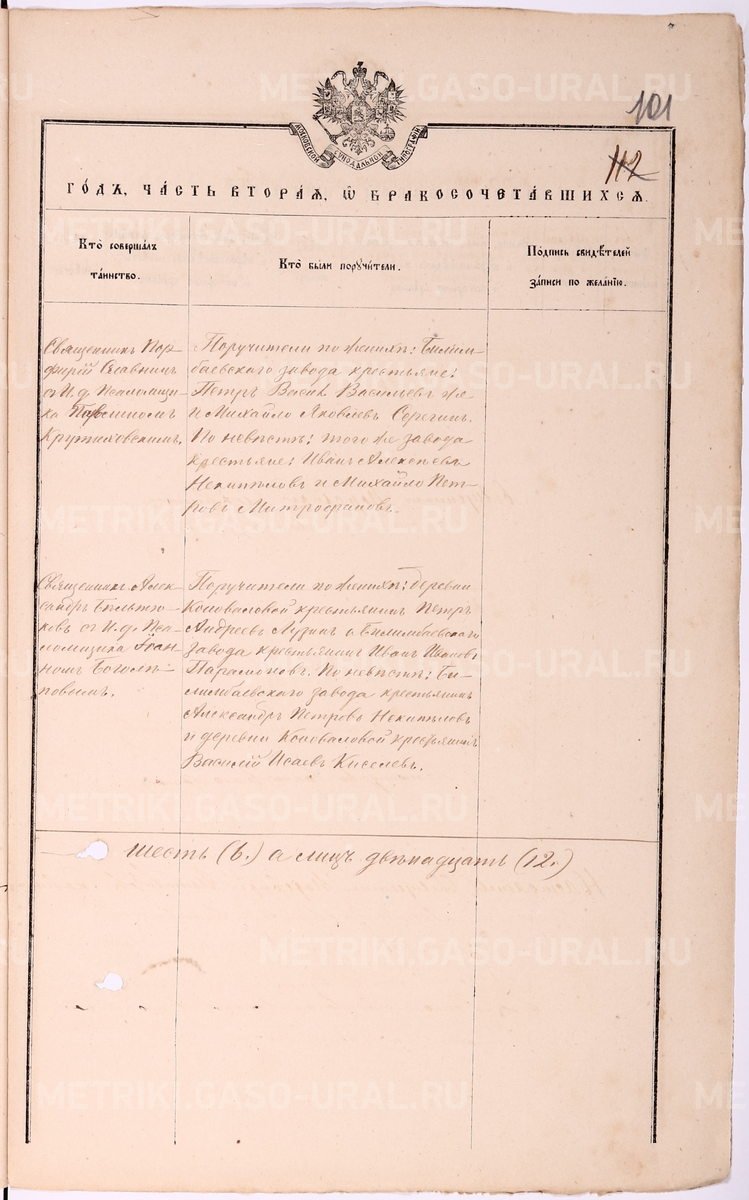 101
112
МОСКОВСКОЙ СѴНОДАЛЬНОЙ ТИПОГРАФІИ
ГО́ДЪ, ЧА́СТЬ ВТОРА́Я, Ѡ҆ БРАКОСОЧЕТА́ВШИХСЯ.
Кто̀ соверша́лъ
та́инство.
Кто̀ бы́ли поручи́тели.
Подпись свидѣ́телей
за́писи по жела́нїю.
Священникъ Пор-
фирій Славнинъ
съ И. д. Псаломщи-
ка Павлиномъ
Кружиховскимъ.
Поручители по женихѣ: Билим-
баевскаго завода крестьяне:
Петръ Васил Васильевъ
и Михайло Яковлевъ Серегинъ.
По невѣстѣ: того же завода
крестьяне: Иванъ Алексѣевъ
Некипѣловъ и Михайло Пет-
ровъ Митрофановъ.
Священникъ Алек-
сандръ
съ И. д. Пса-
ломщика Іоан-
номъ Боголѣ-
повымъ.
Поручители по женихѣ: деревни
Коноваловой крестьянинъ Петръ
Андреевъ Лузинъ и Билимбаевскаго
завода крестьянинъ Иванъ Ивановъ
Парамоновъ. По невѣстѣ: Би-
лимбаевскаго завода крестьянинъ
Александръ Петровъ Некипѣловъ
и деревни Коноваловой крестьянинъ
Василій Исаевъ Киселевъ.
шесть (6.) а лицъ двѣнадцать (12.)
METRIKI.GASO-URAL.RU